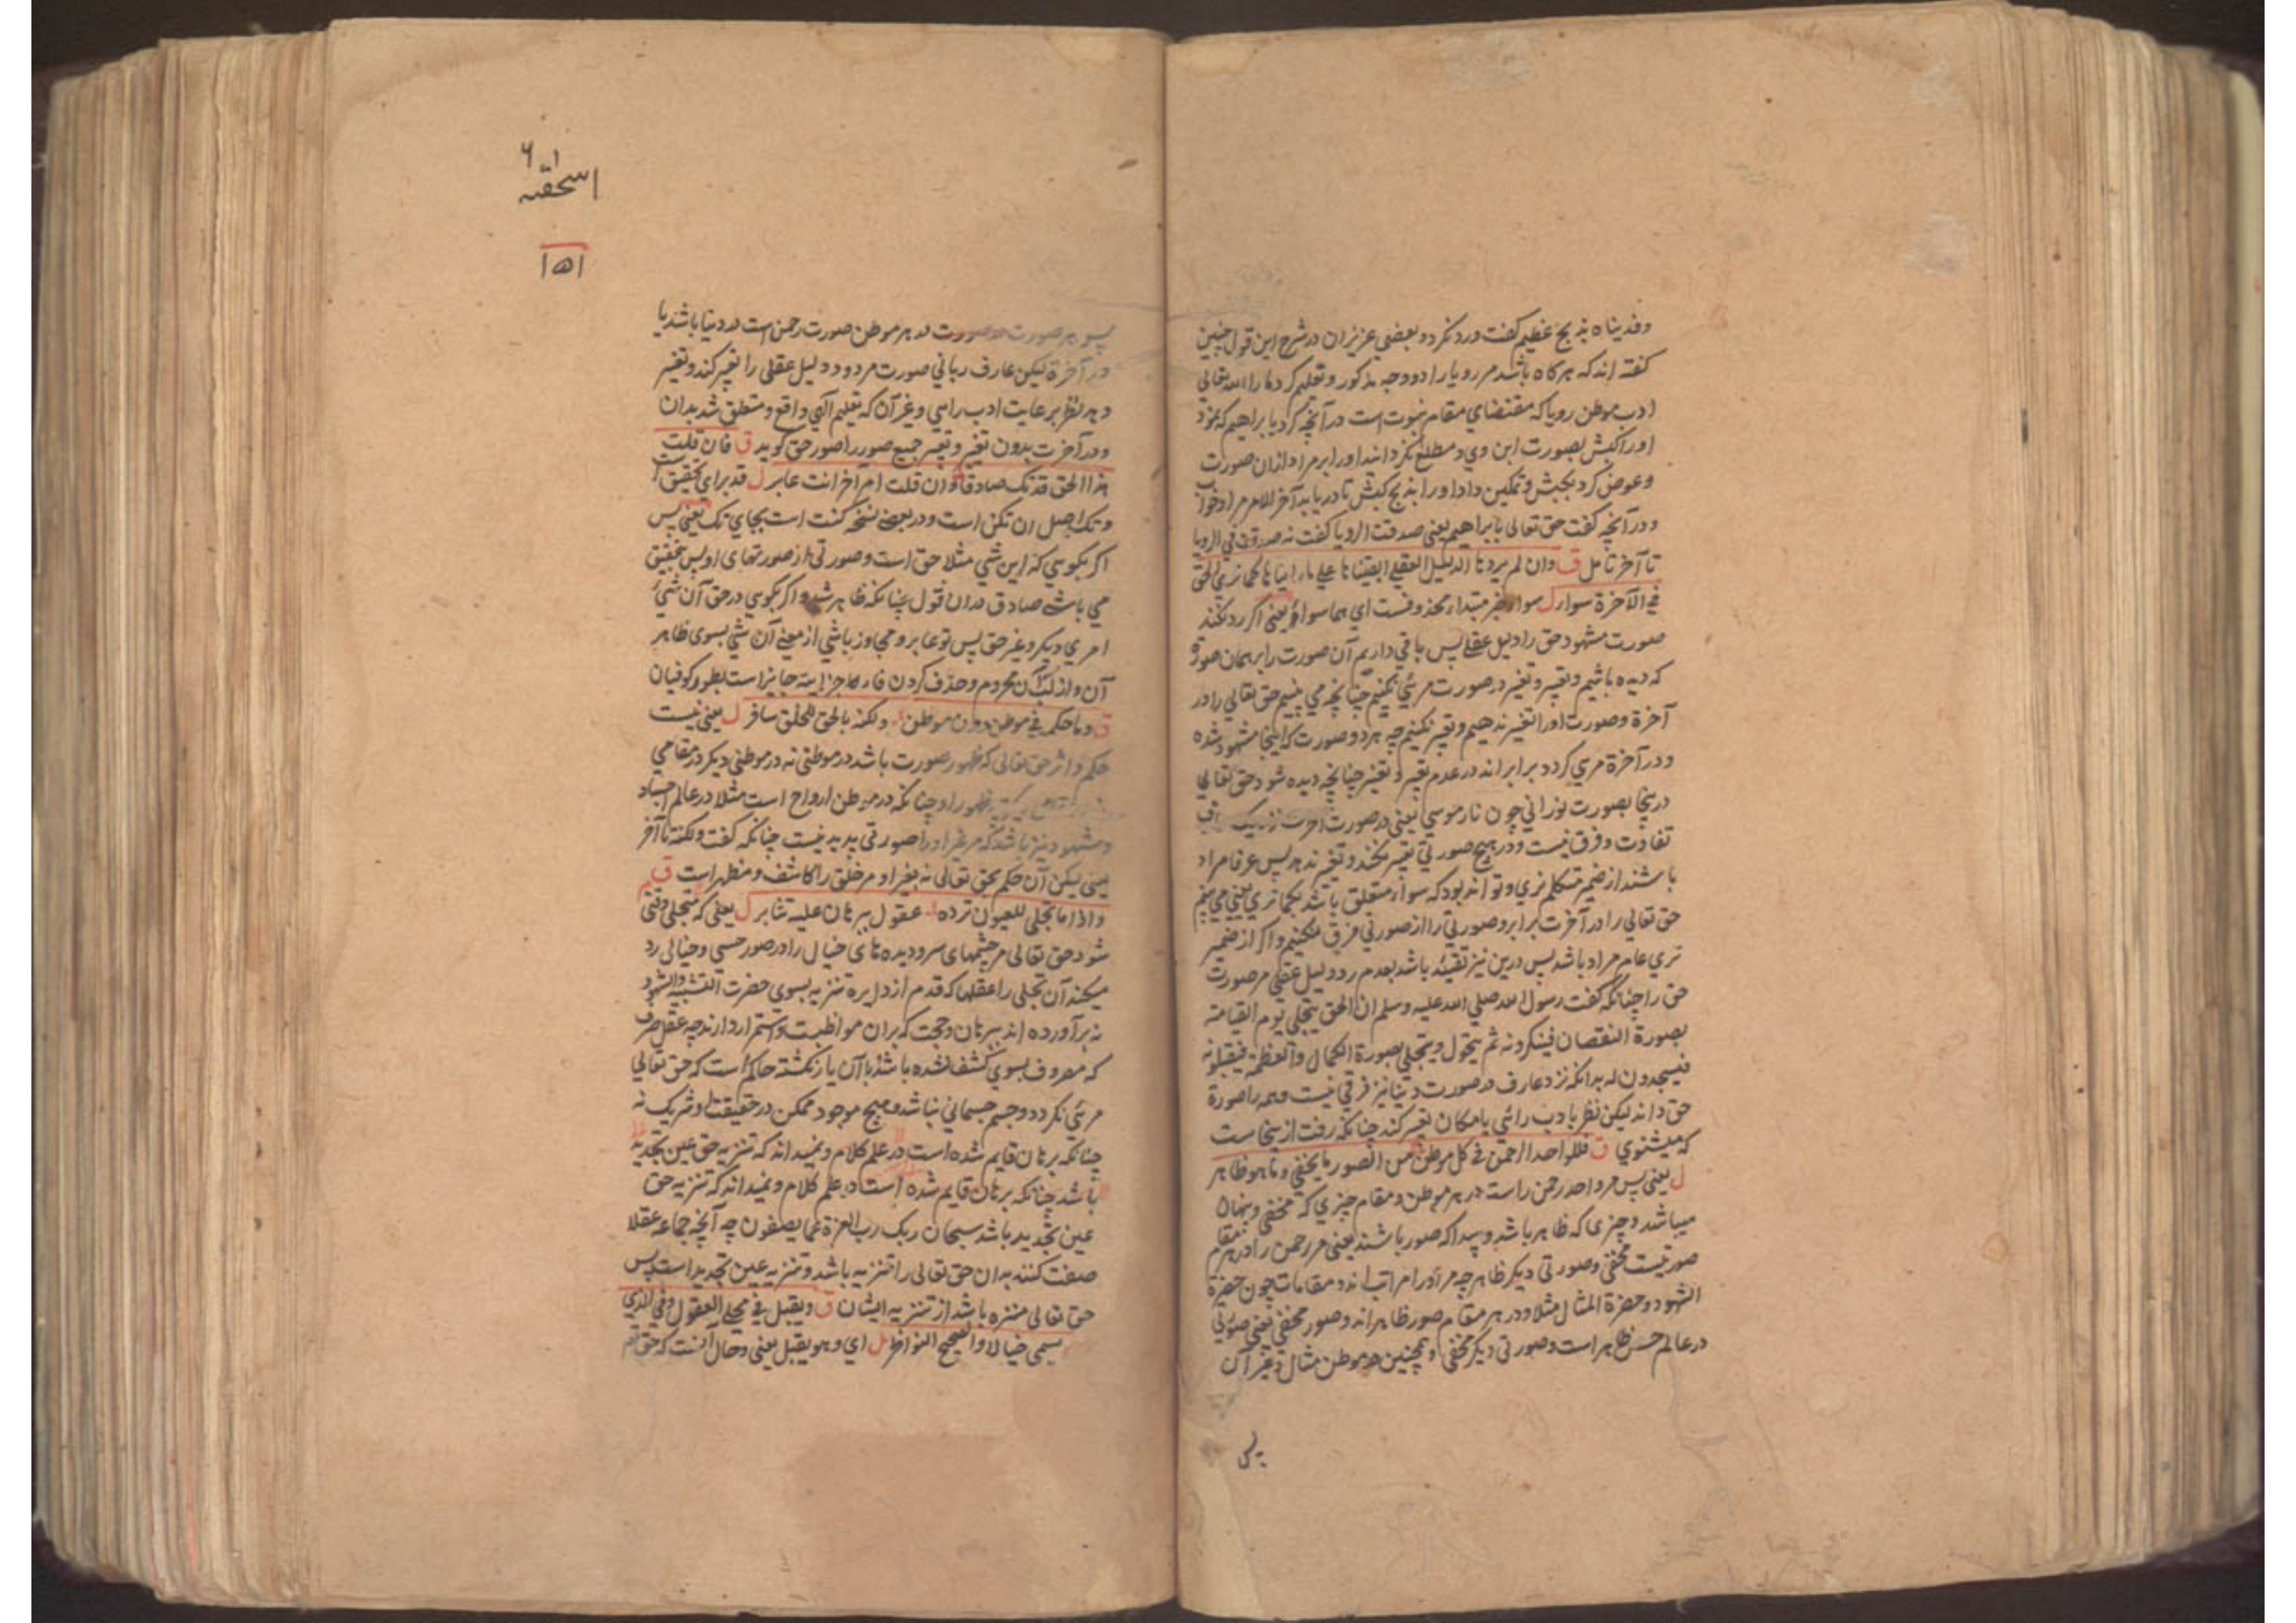 وفدیناه بذبح عظیم گفت ورد نکرد و بعضی عزیزان در شرح این قول چنین
گفته اند که هرگاه باشد مر رویا را دو وجه مذکور و تعلیم کرد ما را الله تعالی
ادب موطن رویا که مقتضای مقام نبوت است در آنچه کرد با ابراهیم که نمود
او را کبش بصورت ابن وی و مطلع نگردانند او را بر مراد ازان صورت
و عوض کرد بکبش و تمکین داد او را بذبح کبش تا دریابد آخر الامر مراد خواب
و در آنچه گفت حق تعالی بابراهیم یعنی صدقت الرویا گفت نه صدقت فی الرویا
تا آخر تامل ق وان لم یردها الدلیل العقلی ابقیناها علی ما راینا ها کما نری الحق
فی الآخرة سواء ل سواء خبر مبتداء محذوفست ای هما سواء یعنی اگر رد نکند
صورت مشهود حق را دلیل عقلی پس باقی داریم آن صورت را بر همان صورة
که دیده باشیم و تعبیر و تغیر در صورت مرئی نکنیم چنانچه می بینیم حق تعالی را در
آخرة و صورت او را تغیر ندهیم و تعبیر نکنیم چه هر دو صورت که اینجا مشهود شده
و در آخرة مرئی گردد برابر اند در عدم تعبیر و تغیر چنانچه دیده شود حق تعالی
درینجا بصورت نورانی چون نار موسی یعنی در صورت
تفاوت و فرق نیست و در هیچ صورتی تعبیر نکند و تغیر ندهد پس عرفا مراد
باشند از ضمیر متکلم نری و تواند بود که سواء متعلق باشد بکما نری یعنی می بینیم
حق تعالی را در آخرت برابر و صورتی را از صورتی فرق نکنیم و اگر از ضمیر
نری عام مراد باشد پس درین نیز تقیید باشد بعدم رد دلیل عقلی مر صورت
حق را چنانکه گفت رسول الله صلی الله علیه وسلم ان الحق یتجلی یوم القیامة
بصورة النقصان فینکرونه ثم یتحول ویتجلی بصورة الکمال والعظمة فیقبلونه
فیسجدون له بدانکه نزد عارف در صورت دنیا نیز فرقی نیست و همه را صورة
حق داند لیکن نظر بادب رائی یا مکان تعبیر کند چنانکه رفت ازینجا ست
که میشنوی ق فللواحد الرحمن فی کل موطن من الصور ما یخفی وما هو ظاهر
ل یعنی پس مر واحد رحمن راست در هر موطن و مقام چیزی که مخفی و پنهان
میباشد و چیزی که ظاهر باشد و پیدا که صور باشند یعنی مر رحمن را در هر مقام
صورتیست مخفی و صورتی دیگر ظاهر چه مر او را مراتب اند و مقامات چون حضرة
الشهود و حضرة المثال مثلا و در هر مقام صور ظاهر اند و صور مخفی یعنی صورتی
در عالم حس ظاهر است و صورتی دیگر مخفی و همچنین در موطن مثال و غیر آن
پس
اسحقیه
۱۵۱
پس هر صورت در هر موطن صورت رحمن است در دنیا باشد یا
در آخرة لیکن عارف ربانی صورت مردود دلیل عقلی را تعبیر کند و تغیر
دهد نظر برعایت ادب رائی و غیر آن که تعلیم الهی واقع و متعلق شد بدان
و در آخرت بدون تغیر و تعبیر جمیع صور را صور حق گوید ق فان قلت
هذا الحق قد تک صادقا وان قلت امر آخر انت عابر ل قد برای تحقیق است
و تک اصل ان تکن است و در بعضی نسخ کنت است بجای تک یعنی پس
اگر بگویی که این شی مثلا حق است و صورتی از صورتهای او پس بتحقیق
می باشی صادق دران قول چنانکه ظاهر شد و اگر بگویی در حق آن شیء
امری دیگر و غیر حق پس تو عابر و مجاوز باشی از معنی آن شی بسوی ظاهر
آن و حذف کردن فاء جائز است بطور کوفیان
ق وما حکمه فی موطن دون موطن ولکنه بالحق للخلق سافر ل یعنی نیست
حکم و اثر حق تعالی که ظهور صورت باشد در موطنی نه در موطنی دیگر در مقامی
ظهور او چنانکه در موطن ارواح است مثلا در عالم اجساد
و مشهود نیز باشد که مر غیر او را صورتی پدید نیست چنانکه گفت ولکنه تا آخر
یعنی لیکن آن حکم بحق تعالی نه بغیر او مر خلق را کاشف و مظهر است ق
واذا ما تجلی للعیون ترده عقول ببرهان علیه تثابر ل یعنی که متجلی وقتی
شود حق تعالی مر چشمهای سر و دیده های خیال را در صور حسی و خیالی رد
میکند آن تجلی را عقلها که قدم از دایره تنزیه بسوی حضرت التشبیه والشهود
نه برآورده اند ببرهان و حجت که بران مواظبت و استمرار دارند چه عقل صرف
که معروف بسوی کشف نشده باشد یا آن باز نگشته حاکم است که حق تعالی
مرئی نگردد و جسم جسمانی نباشد و هیچ موجود ممکن در حقیقت او شریک نه
چنانکه برهان قایم شده است در علم کلام و نمیداند که تنزیه حق عین تحدید
باشد چنانکه برهان قایم شده است در علم کلام و نمیداند که تنزیه حق
عین تحدید باشد سبحان ربک رب العزة عما یصفون چه آنچه جماعه عقلا
صفت کنند بدان حق تعالی را تنزیه باشد و تنزیه عین تحدید است پس
حق تعالی منزه باشد از تنزیه ایشان ق ویقبل فی مجلی العقول وفی الذی
یسمی خیالا والصحیح النواظر ل ای وهو یقبل یعنی و حال آنست که حق تعم